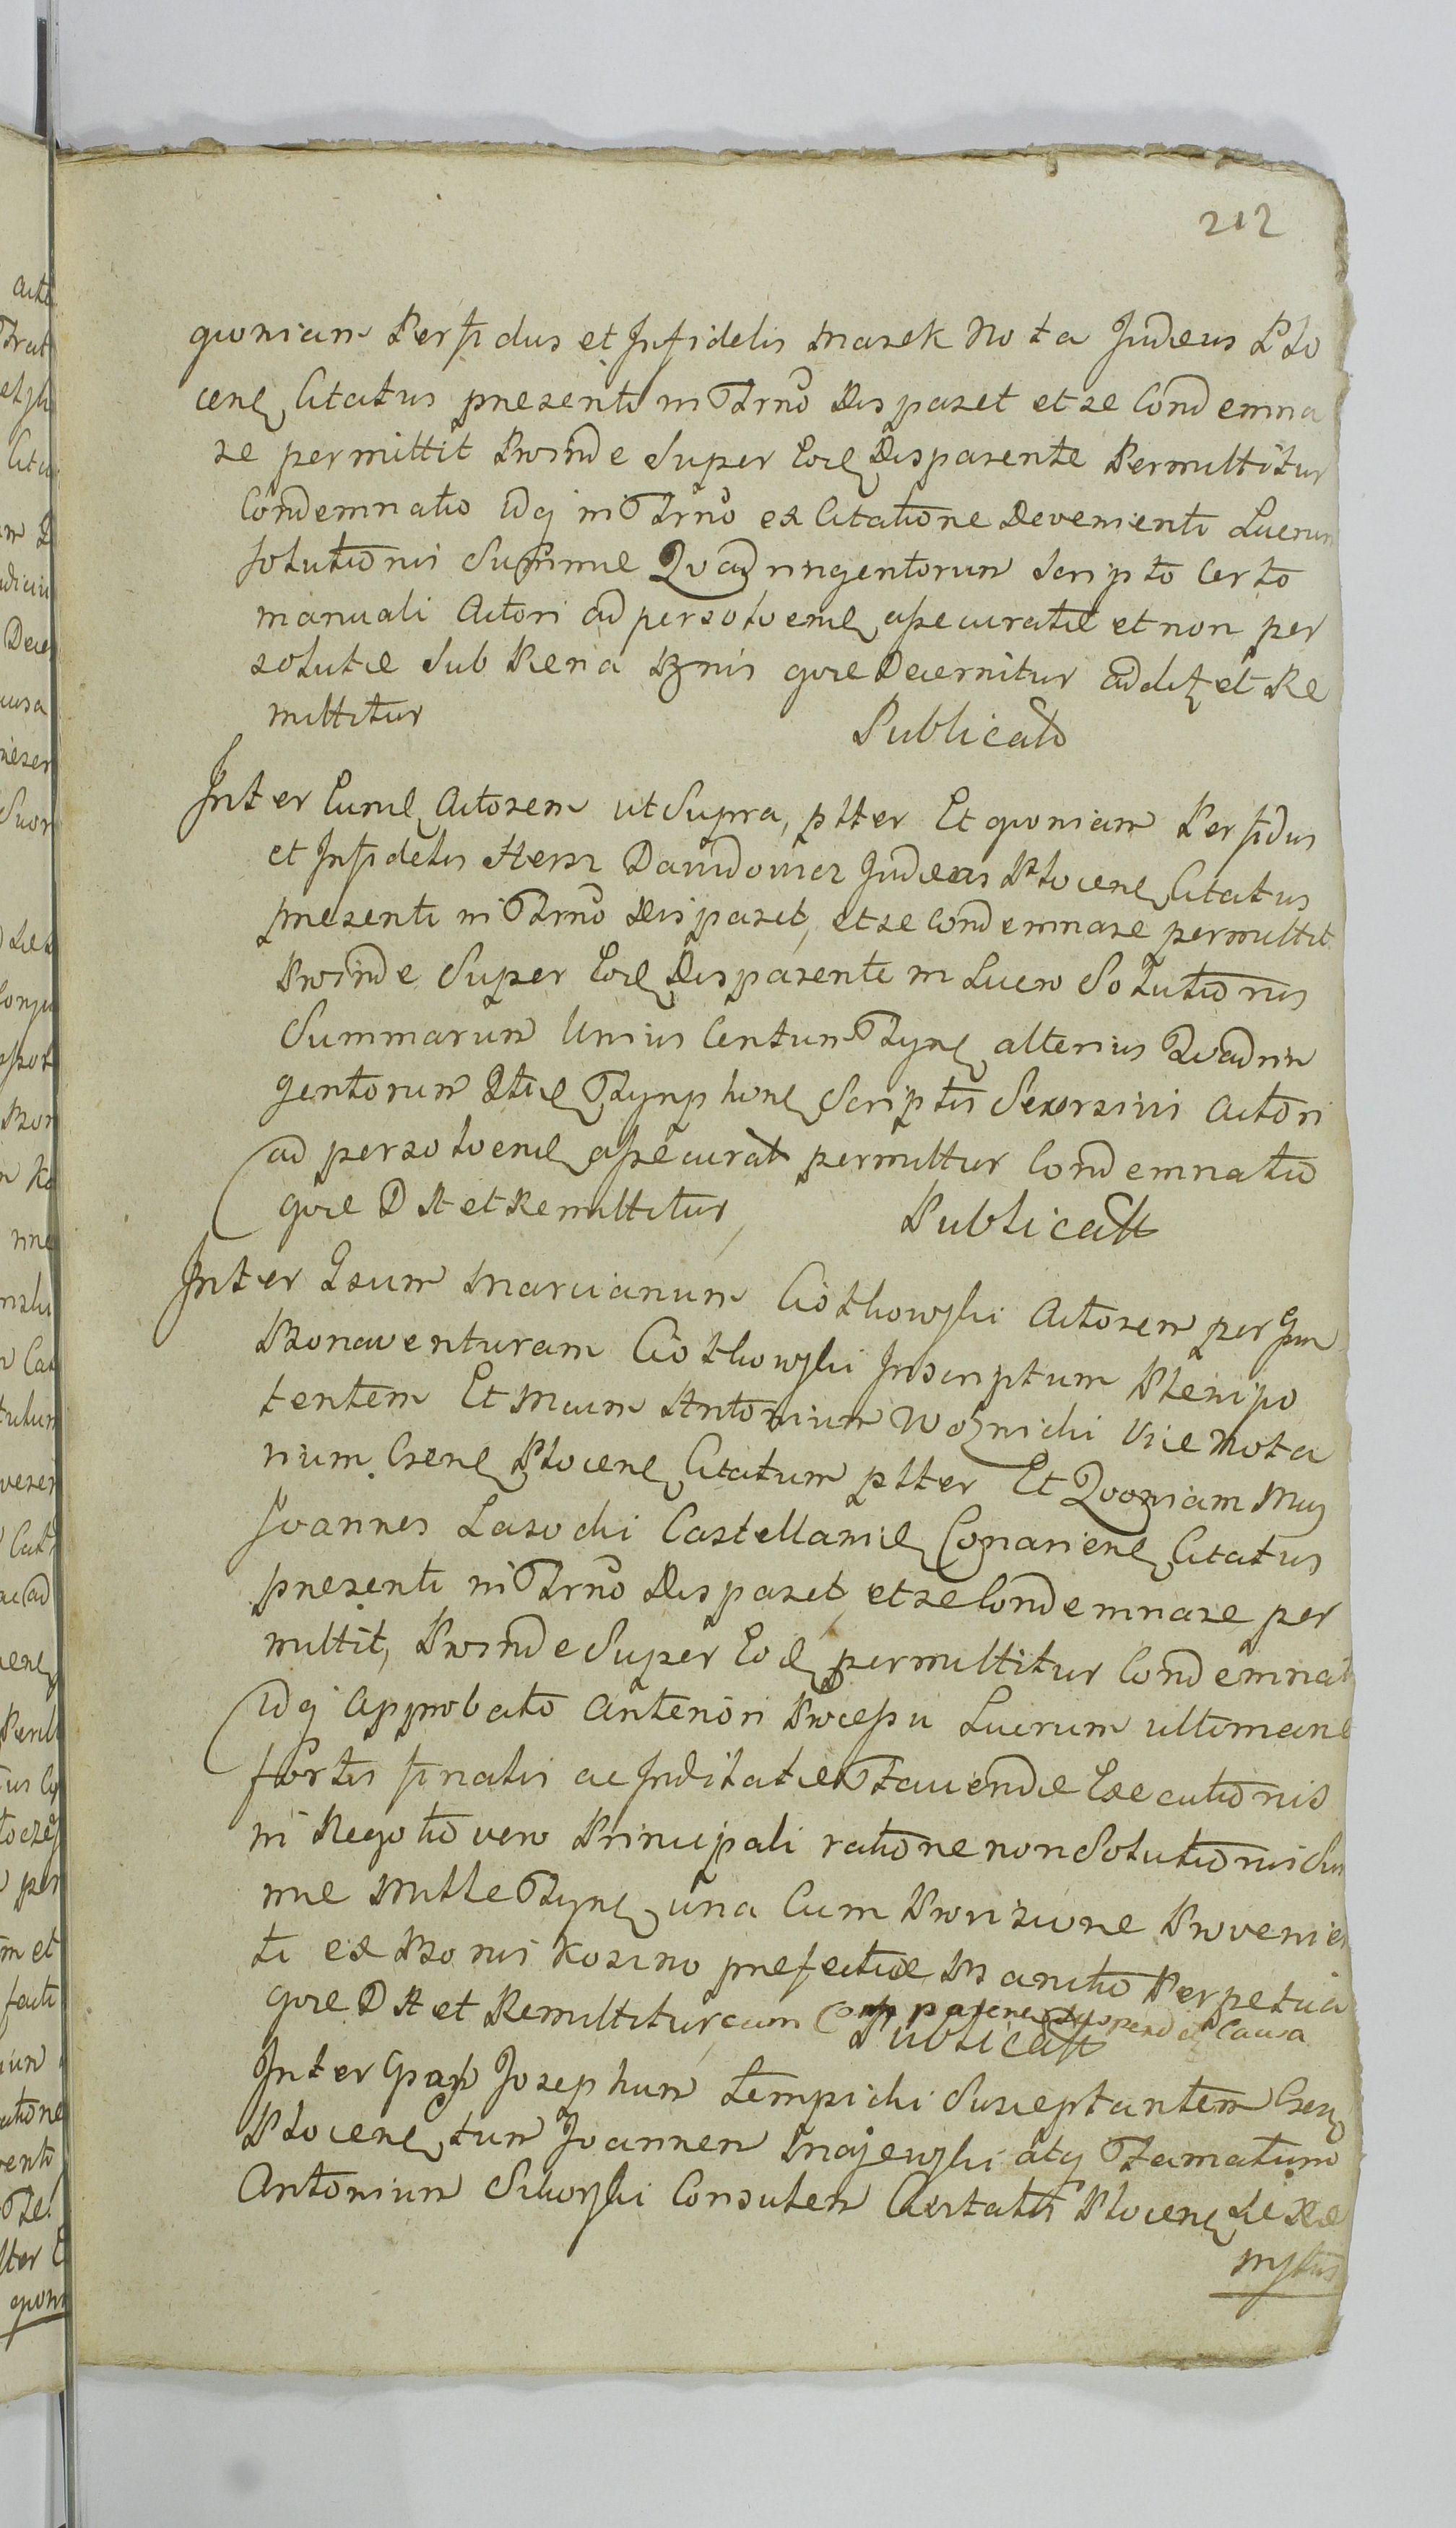 212
quoniam Perfidus et Infidelis Marek Nota Judæus Plo
cen Citatus presenti in Trno Disparet et se Condemna
re permittit Proinde Super Eoe Disparente Permittitur
Condemnatio Idq in Trno ex Citatione Devenienti Lucrum
solutionis Summæ Quadringentorum Scripto Certo
manuali Actori ad persolvend assecuratæ et non per
solutæ Sub Pena Bnis quæ Decernitur addit et Re
mittitur
Publicat
Inter Eund Actorem ut Supra, ptter Et quoniam Perfidus
et Infidelis Hersz Dawidowicz Judæus Plocen Citatus
presenti in Trno Disparet, et se Condemnare permittit
Proinde Super Eoe Disparente in Lucro Solutionis
Summarum Unius Centum Tynf alterius Quadrin
gentorum Itid Tynphon Scriptis Seorsivis Actori
ad persolvend assecurat permittitur Condemnatio
quæ D A et Remittitur,
Publicatt
Inter Gsum Marcianum Ciotkowski Actorem per Gm
Bonaventuram Ciotkowski Inscriptum Plenipo
tentem Et Mcum Antonium Woznicki Vice Nota
rium Csen Plocen Citatum ptter Et Quoniam Mus
Joannes Lasocki Castellanid Conarien Citatus
presenti in Trno Disparet, et se Condemnare per
mittit, Proinde Super Eoe permittitur Condemnat
Idq Approbato Anteriori Processu Lucrum ultimane
fortis finalis ac Inditatæ Faciendæ Executionis
in Negotio vero Principali ratione non Solutionis Sum
mæ Mille Tynf una Cum Provisione Provenien
ti ex Bonis Kosino prefectæ Bannitio Perpetua
quæ D A et Remittitur, cum Comparen Suspend et Causa
Publicatt
Inter Gsam Josephum Lempicki Susceptantem Csen
Plocen tum Joannem Majewski atq Famatum
Antonium Sikorski Consulem Civitatis Plocen